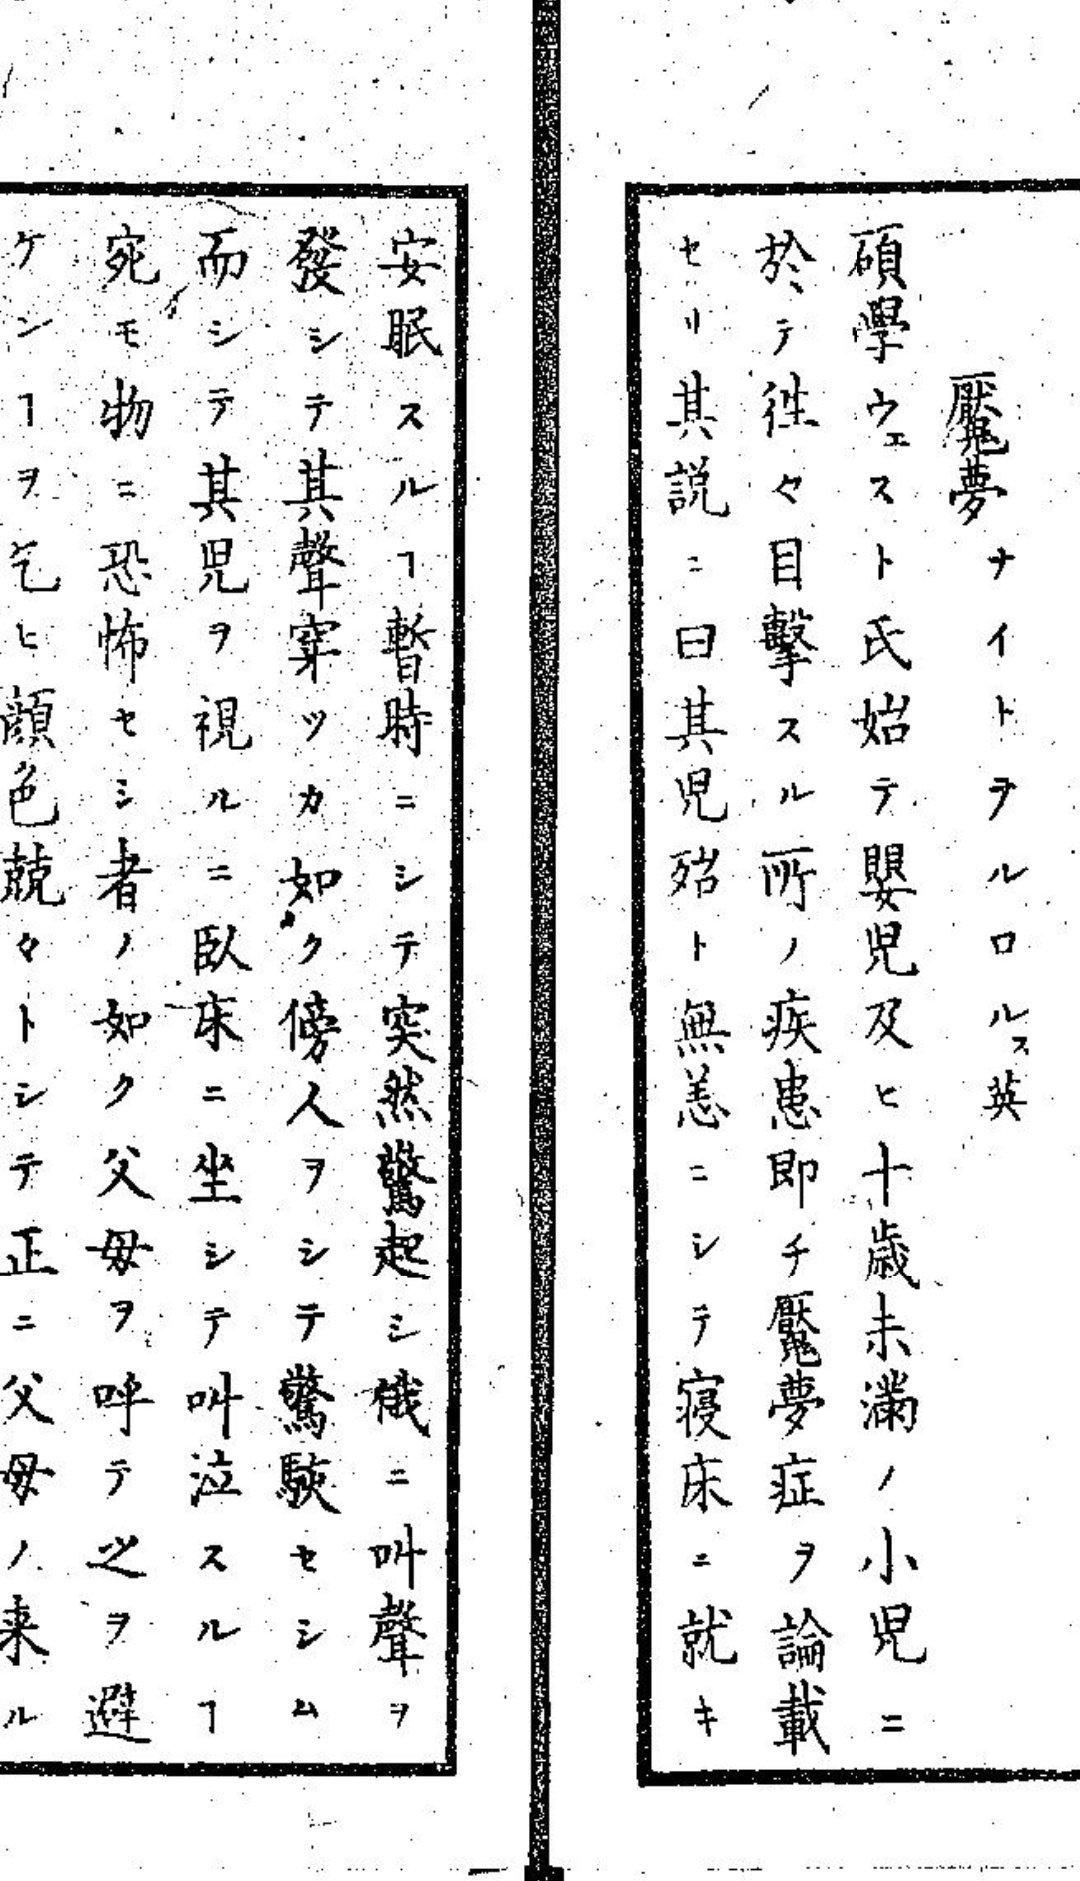 魘夢ナイトヲルロルス英
碩學ウエスト氏始テ嬰児及ヒ十歳未満ノ小児ニ
於テ徃々目擊スル所ノ疾患即チ魘夢症ヲ論載
セリ其説ニ曰其児殆ト無恙ニシテ寝床ニ就キ
安眠スルヿ暫時ニシテ突然驚起シ俄ニ叫聲ヲ
發シテ其聲穿ツカ如ク傍人ヲシテ驚駭セシム
而シテ其児ヲ視ルニ臥床ニ坐シテ叫泣スルヿ
宛モ物ニ恐怖セシ者ノ如ク父母ヲ呼テ之ヲ避
ケンヿヲ乞ヒ顔色兢々トシテ正ニ父母ノ来ル